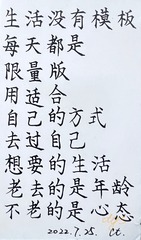 生活没有模板
每天都是
限量版
用适合
自己的方式
去过自己
想要的生活
老去的是年龄
不老的是心态
2022.7.25. ct.